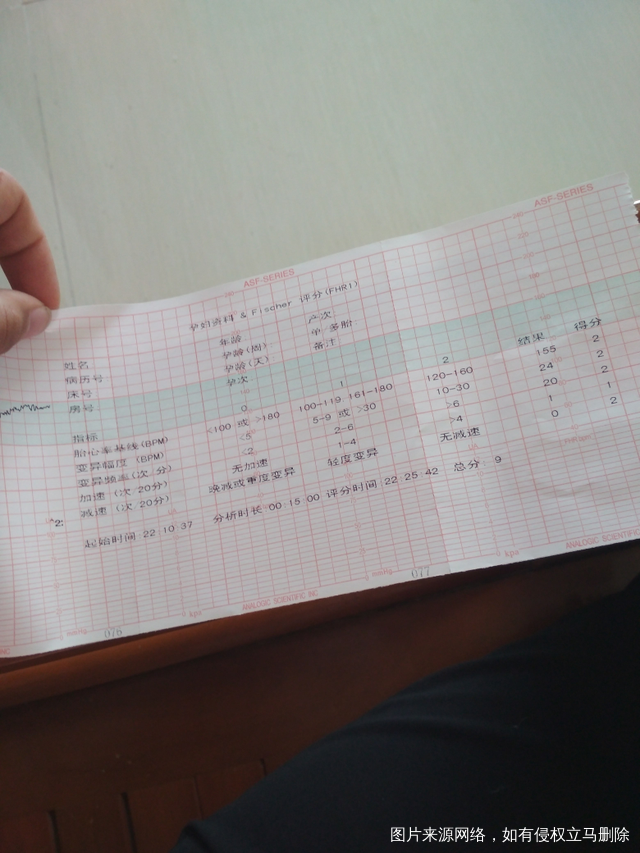 ASF-SERIES
ASF-SERIES
孕妇资料 & Fischer 评分(FHR1)
姓名 年龄 产次
病历号 孕龄(周) 单 多胎
床号 孕龄(天) 备注
房号 孕次
指标 0 1 2 结果 得分
胎心率基线(BPM) <100 或 >180 100-119 161-180 120-160 155 2
变异幅度 (BPM) <5 5-9 或 >30 10-30 24 2
变异频率(次 分) <2 2-6 >6 20 2
加速 (次 20分) 无加速 1-4 >4 1 1
减速 (次 20分) 晚减或重度变异 轻度变异 无减速 0 2
*2:
起始时间 22:10:37 分析时长:00:15:00 评分时间:22:25:42 总分 9
mmHg kpa ANALOGIC SCIENTIFIC INC mmHg kpa ANALOGIC SCIENTIFIC
076 077
图片来源网络，如有侵权立马删除